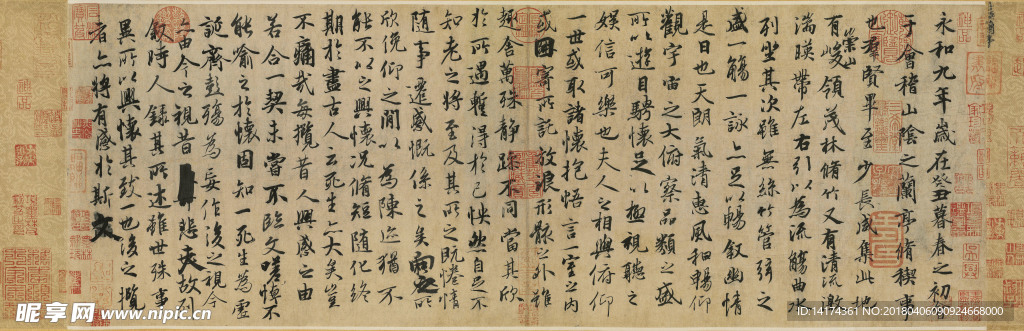 永和九年歲在癸丑暮春之初會
于會稽山陰之蘭亭脩稧事
也羣賢畢至少長咸集此地
有崇山峻領茂林脩竹又有清流激
湍暎帶左右引以為流觴曲水
列坐其次雖無絲竹管弦之
盛一觴一詠亦足以暢敘幽情
是日也天朗氣清惠風和暢仰
觀宇宙之大俯察品類之盛
所以遊目騁懷足以極視聽之
娛信可樂也夫人之相與俯仰
一世或取諸懷抱悟言一室之內
或因寄所託放浪形骸之外雖
趣舍萬殊靜躁不同當其欣
於所遇暫得於己怏然自足不
知老之將至及其所之既惓情
隨事遷感慨係之矣向之所
欣俛仰之閒以為陳迹猶不
能不以之興懷況脩短隨化終
期於盡古人云死生亦大矣豈
不痛哉每攬昔人興感之由
若合一契未嘗不臨文嗟悼不
能喻之於懷固知一死生為虛
誕齊彭殤為妄作後之視今
亦由今之視昔悲夫故列
敘時人錄其所述雖世殊事
異所以興懷其致一也後之攬
者亦將有感於斯文
昵享网 www.nipic.cn
ID:14174361 NO:20180406090924668000